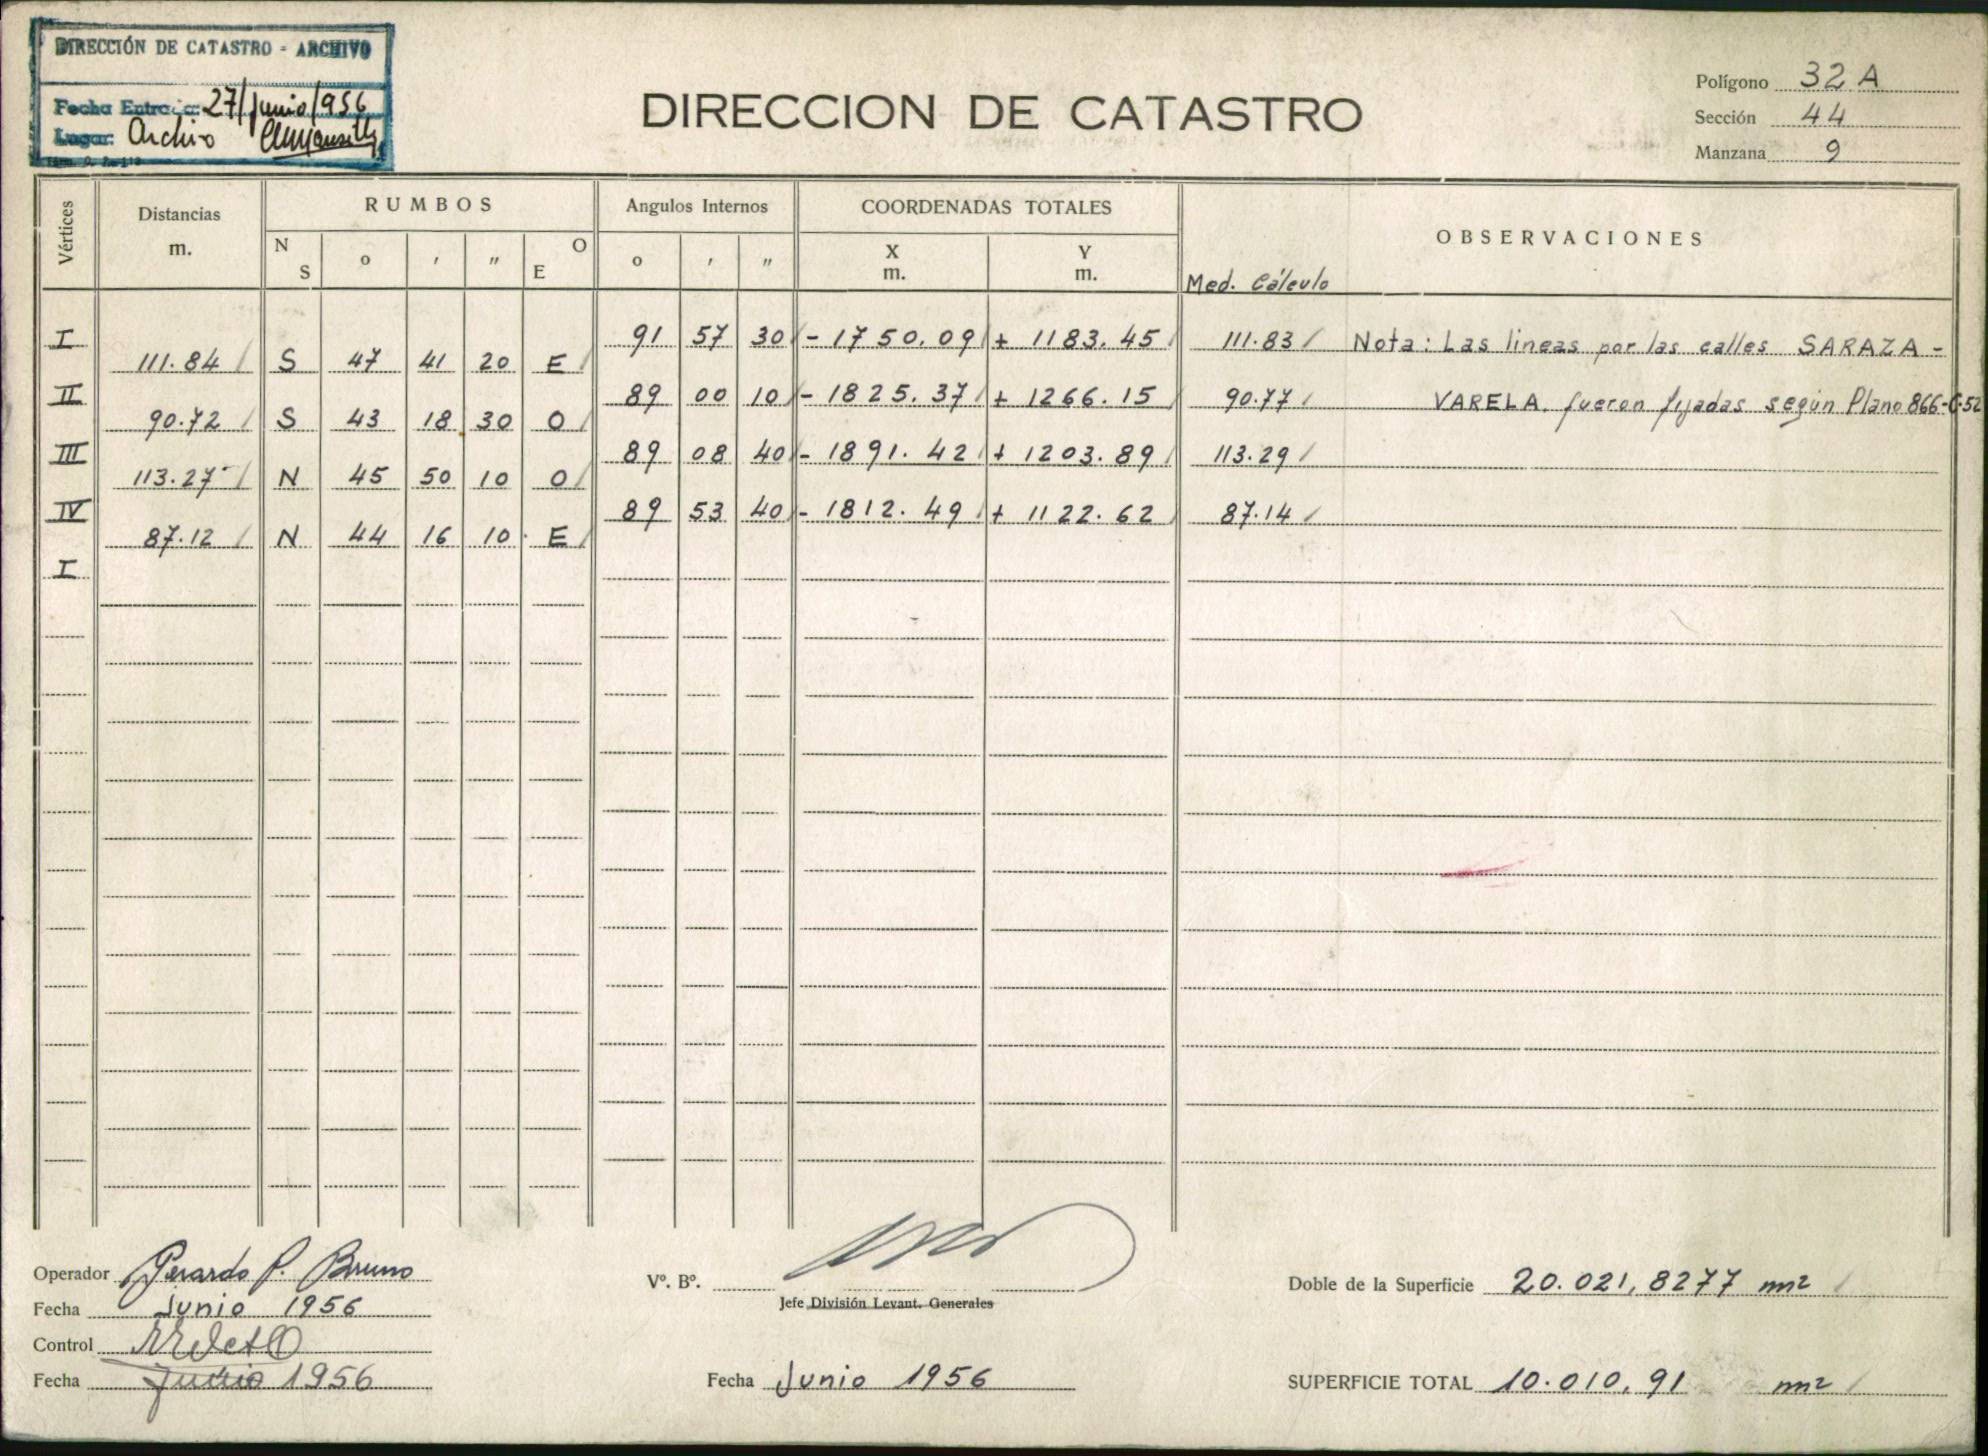 DIRECCIÓN DE CATASTRO - ARCHIVO
Fecha Entrada: 27/Junio/956
Lugar: Archivo
DIRECCION DE CATASTRO
Polígono 32 A
Sección 44
Manzana 9
Vértices Distancias m. RUMBOS Angulos Internos COORDENADAS TOTALES OBSERVACIONES
N S o ′ ″ O E o ′ ″ X m. Y m. Med. Cálculo
I 91 57 30 - 1750.09 + 1183.45 111.83 Nota: Las lineas por las calles SARAZA -
111.84 S 47 41 20 E
II 89 00 10 - 1825.37 + 1266.15 90.77 VARELA, fueron fijadas según Plano 866-C-52
90.72 S 43 18 30 O
III 89 08 40 - 1891.42 + 1203.89 113.29
113.27 N 45 50 10 O
IV 89 53 40 - 1812.49 + 1122.62 87.14
87.12 N 44 16 10 E
I
Operador Gerardo P. Bruno
Fecha Junio 1956
Control
Fecha Junio 1956
Vº. Bº.
Jefe División Levant. Generales
Fecha Junio 1956
Doble de la Superficie 20.021,8277 m2
SUPERFICIE TOTAL 10.010,91 m2